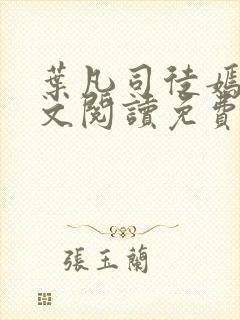 葉凡司徒嫣
文閱讀免費
張玉蘭